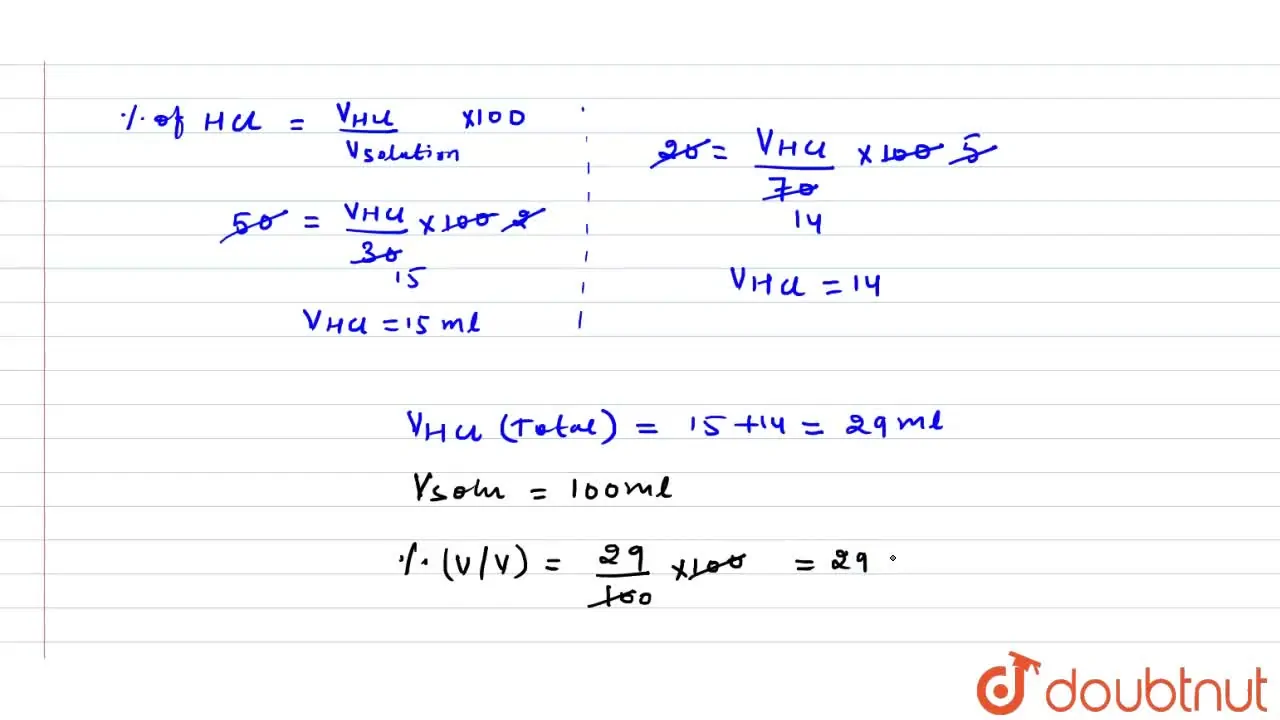 % of HCl = VHCl/Vsolution ×100
50 = VHCl/30 ×100 2
15
VHCl = 15 ml
20 = VHCl/70 ×100 5
14
VHCl = 14
VHCl (Total) = 15 + 14 = 29 ml
Vsoln = 100 ml
% (V/V) = 29/100 ×100 = 29
doubtnut